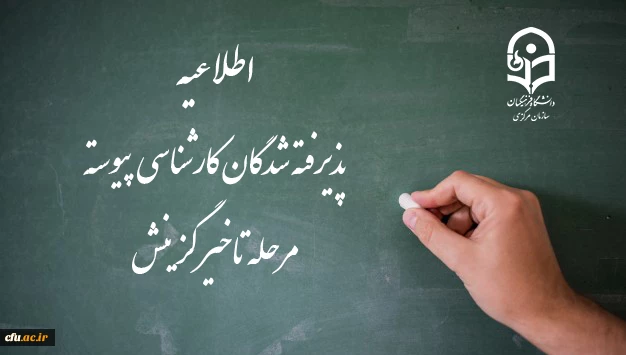 اطلاعیه
پذیرفته شدگان کارشناسی پیوسته
مرحله تاخیر گزینش
دانشگاه فرهنگیان
سازمان مرکزی
cfu.ac.ir